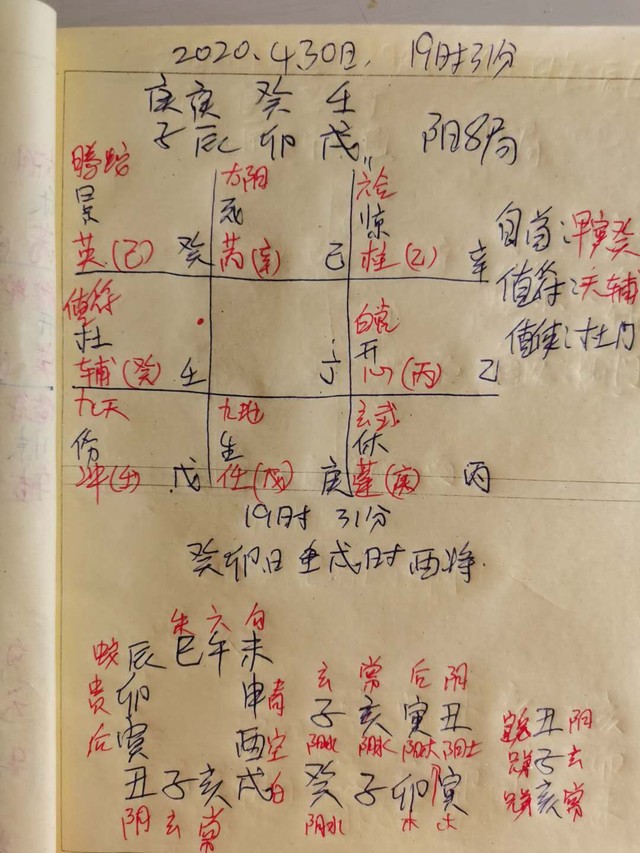 2020.4.30日. 19时31分
庚庚 癸 壬
子辰 卯 戌 阴8局
腾蛇 太阴 六合
景 死 惊
英(己) 癸 芮(辛) 己 柱(乙) 辛
自首:甲寅癸
值符:天辅
值使:杜门
值符 白虎
杜 开
辅(癸) 壬 丁 心(丙) 乙
九天 九地 玄武
伤 生 休
冲(壬) 戊 任(戊) 庚 蓬(庚) 丙
19时 31分
癸卯日 壬戌时 酉将.
朱 六 白
蛇 辰 巳 午 未
贵 卯 申
后 寅 酉 空
丑 子 亥 戌 白
阴 玄 常
玄 常 后 阴
子 亥 寅 丑
阳水 阴水 阳木 阴土
癸 子 卯 寅
阴水 木 木
丑 阴
子 玄
亥 常